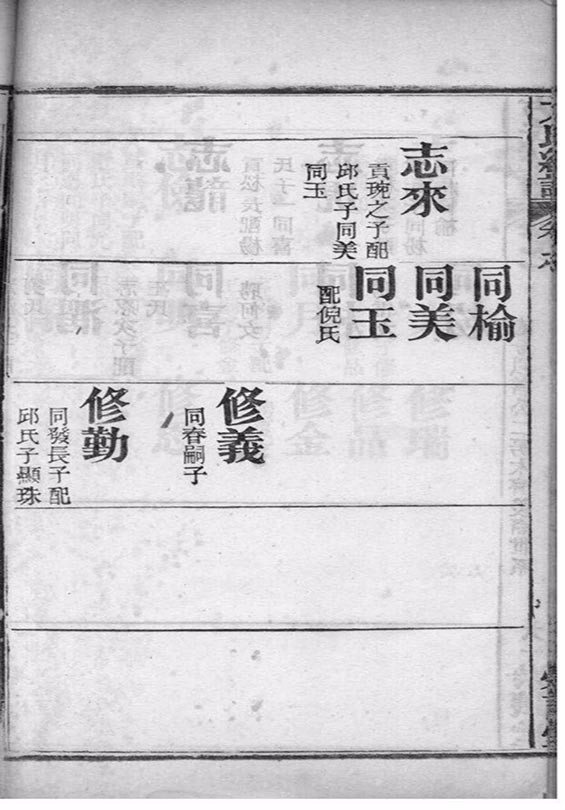 志來
貢琬之子配
邱氏子同美
同玉
同榆
同美
同玉
配倪氏
修義
同春嗣子
修勤
同發長子配
邱氏子顯珠